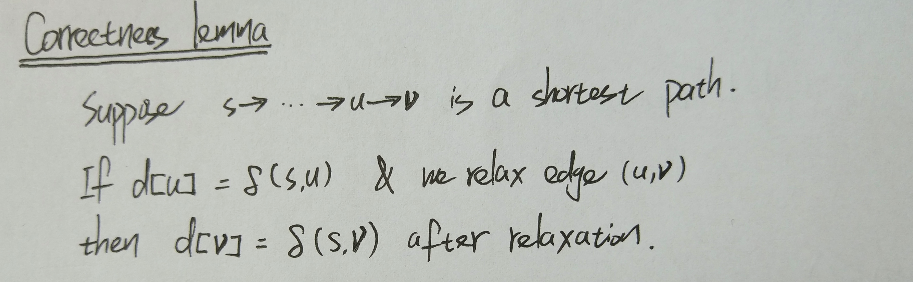 Correctness lemma
Suppose s→ ... →u→v is a shortest path.
If d[u] = δ(s,u) & we relax edge (u,v)
then d[v] = δ(s,v) after relaxation.